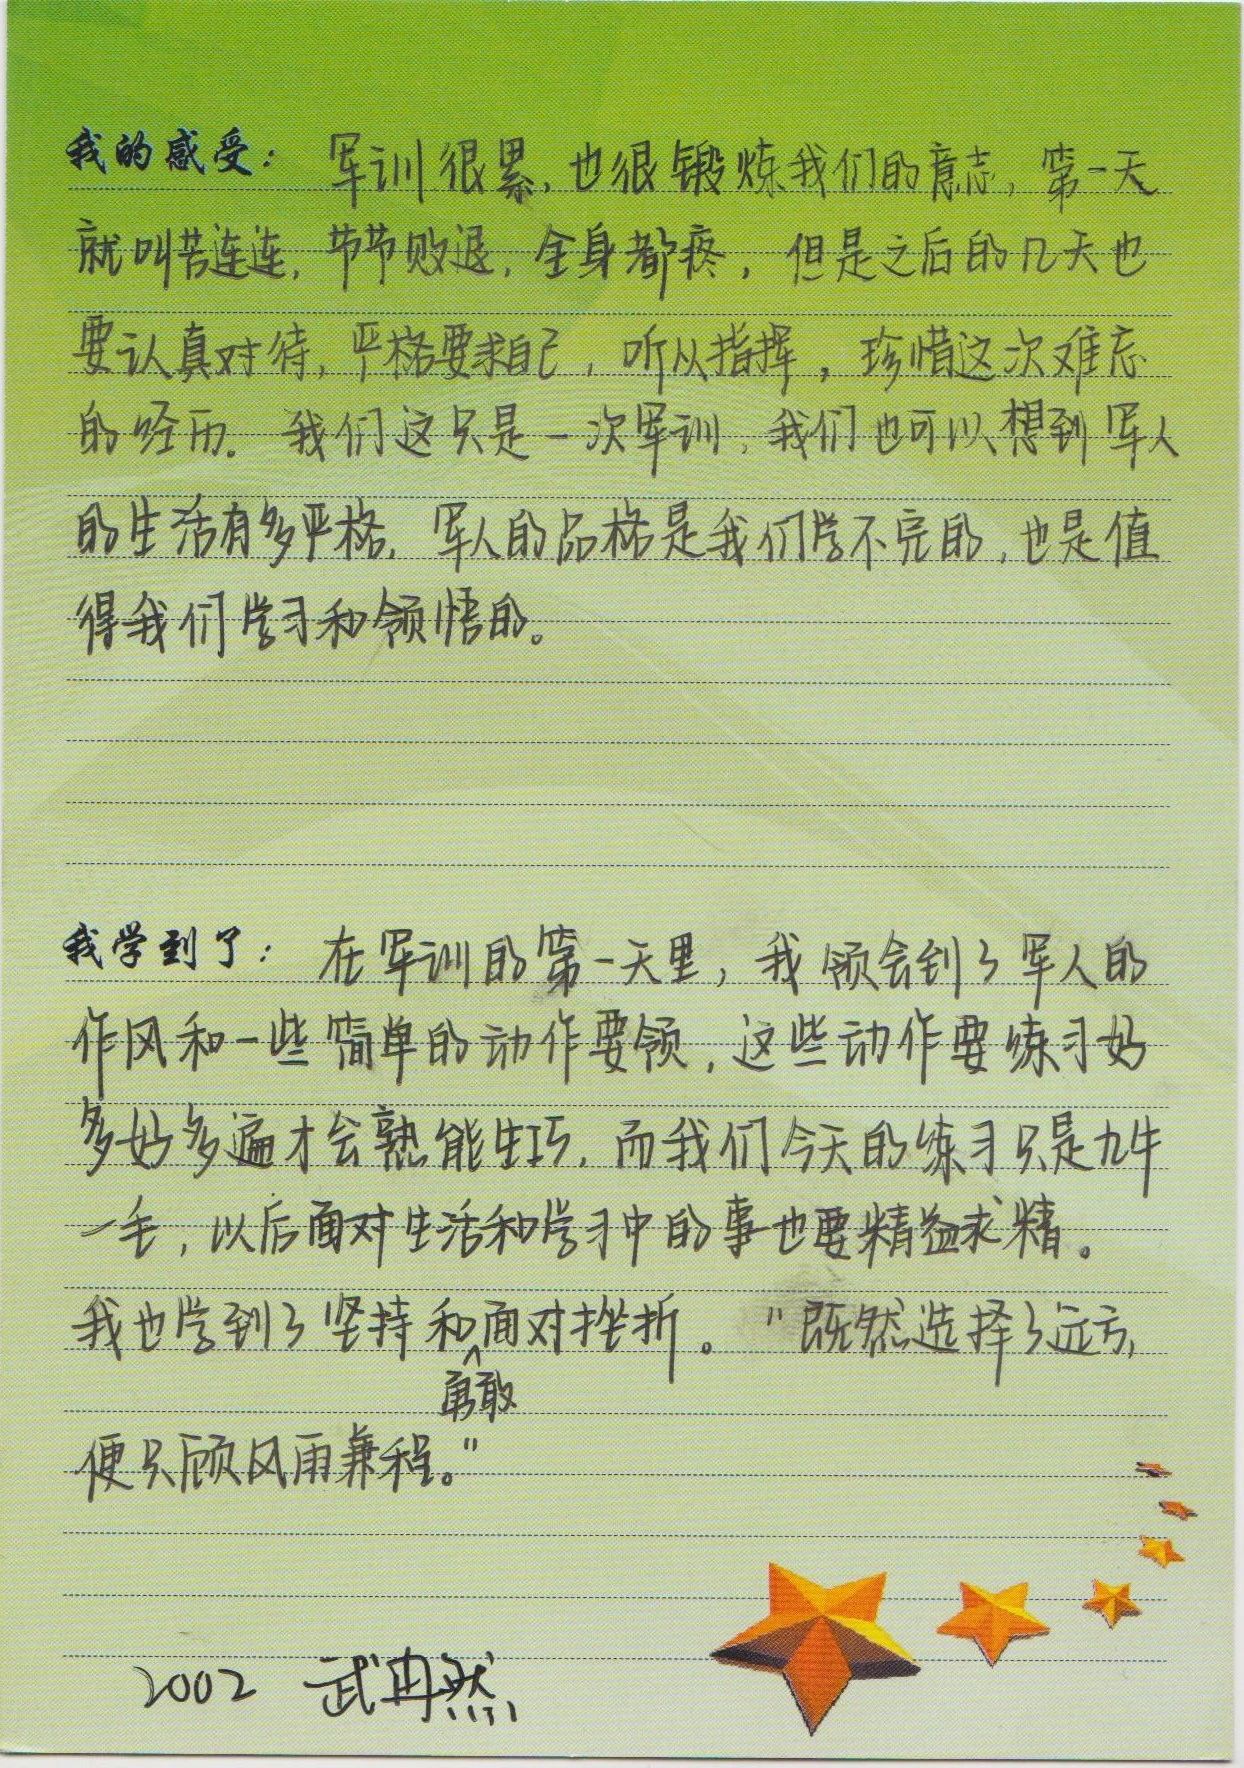 我的感受：军训很累，也很锻炼我们的意志，第一天
就叫苦连连，节节败退，全身都疼，但是之后的几天也
要认真对待，严格要求自己，听从指挥，珍惜这次难忘
的经历。我们这只是一次军训，我们也可以想到军人
的生活有多严格，军人的品格是我们学不完的，也是值
得我们学习和领悟的。
我学到了：在军训的第一天里，我领会到了军人的
作风和一些简单的动作要领，这些动作要练习好
多好多遍才会熟能生巧，而我们今天的练习只是九牛
一毛，以后面对生活和学习中的事也要精益求精。
我也学到了坚持和勇敢面对挫折。“既然选择了远方，
便只顾风雨兼程。”
2002 武冉然